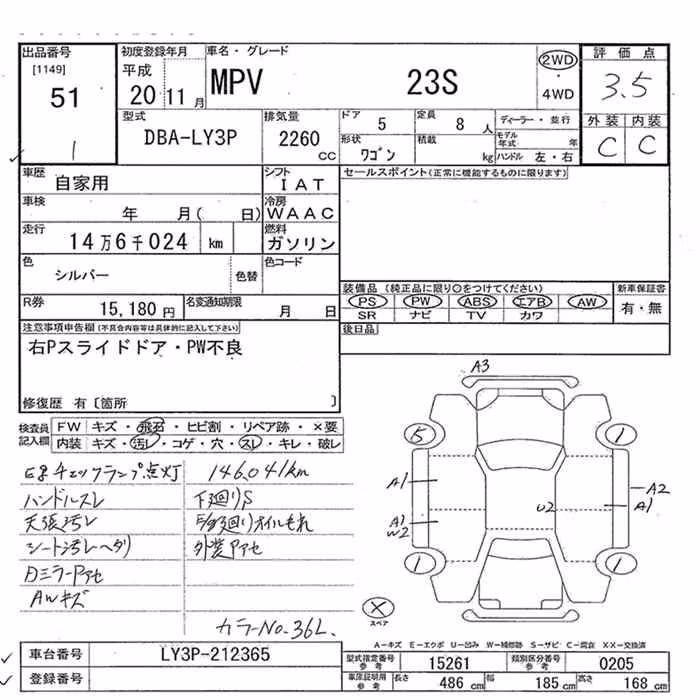 出品番号
[1149]
51
1
初度登録年月
平成
20 11 月
車名・グレード
MPV 23S
2WD
・
4WD
評価点
3.5
外装 内装
C C
型式
DBA-LY3P
排気量
2260 CC
ドア 5
定員 8 人
形状 ワゴン
積載 kg
ディーラー・並行
モデル年式 年
ハンドル 左・右
車歴 自家用
シフト IAT
車検 年 月( 日)
冷房 WAAC
走行 14万6千024 km
燃料 ガソリン
色 シルバー 色替
色コード
R券 15,180 円
名変通知期限 月 日
セールスポイント(正常に機能するものに限ります)
装備品(純正品に限り○をつけてください)
新車保証書
PS PW ABS エアB AW
SR ナビ TV カワ
有・無
後日品
注意事項申告欄(不具合内容等は具体的に記入して下さい)
右Pスライドドア・PW不良
修復歴 有〔箇所 〕
検査員記入欄
FW キズ・飛石・ヒビ割・リペア跡・×要
内装 キズ・汚レ・コゲ・穴・スレ・キレ・破レ
チェックランプ点灯
146,041km
ハンドルスレ
下廻りS
天張汚レ
オイルもれ
シート汚レヘタリ
外装Pアセ
DミラーPアセ
AWキズ
カラーNo.36L
A3
5 1
A1
A2
A1
U2
A1
W2
1 1
×
スペア
A-キズ E-エクボ U-凹み W-補修跡 S-サビ C-腐食 XX-交換済
車台番号 LY3P-212365
登録番号
型式指定番号参考 15261
類別区分番号参考 0205
車庫証明用参考 長さ 486 cm 幅 185 cm 高さ 168 cm